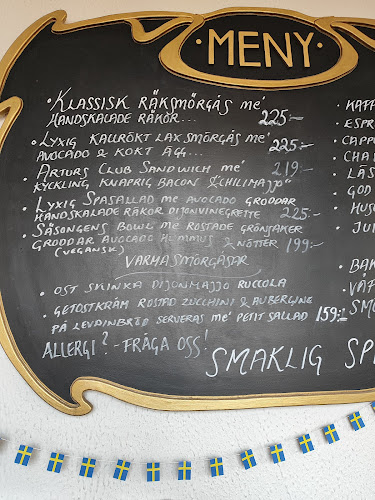 MENY
• KLASSISK RÄKSMÖRGÅS me'
HANDSKALADE RÄKOR... 225:-
• LYXIG KALLRÖKT LAXSMÖRGÅS me'
AVOCADO & KOKT ÄGG... 225:-
• ARTURS CLUB SANDWICH me' 219:-
KYCKLING KNAPRIG BACON & "CHILIMAJJO"
• LYXIG SPASALLAD me AVOCADO GRODDAR
HANDSKALADE RÄKOR DIJONVINEGRETTE 225:-
• SÄSONGENS BOWL me ROSTADE GRÖNSAKER
GRODDAR AVOCADO HUMMUS & NÖTTER 199:-
(VEGANSK)
VARMA SMÖRGÅSAR
• OST SKINKA DIJONMAJJO RUCCOLA
• GETOSTKRÄM ROSTAD ZUCCHINI & AUBERGINE
PÅ LEVAINBRÖD SERVERAS me' PETIT SALLAD 159:-
ALLERGI? - FRÅGA OSS!
SMAKLIG SP
• KAFF
• ESPR
• CAPP
• CHA
• LÄS
• GOD
• HUS
• JUI
• BAK
• VÅF
• SMÖ